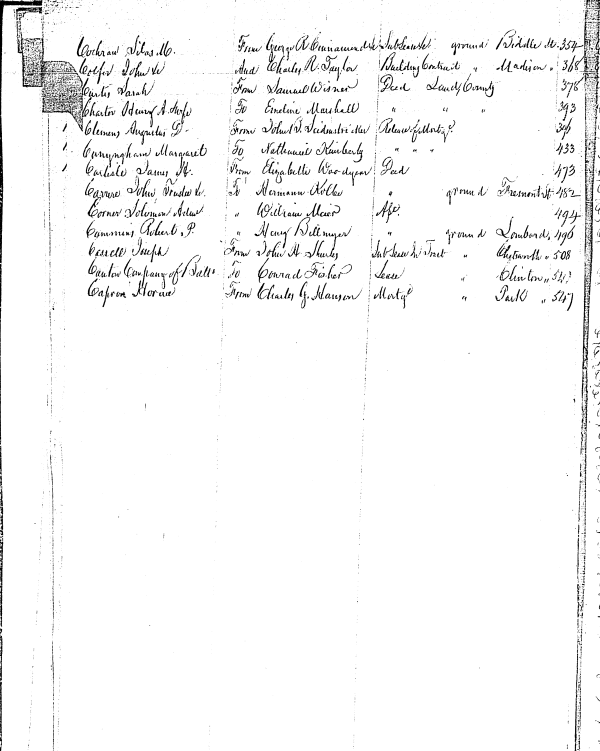 Cochran Silas M. From George R Cinnamond & Sub Lease &c ground Biddle St. 354
Colfer John &c And Charles R. Taylor Building Contract " Madison " 368
Curtis Sarah From Samuel Wisner Deed Land, County 378
Charter Henry A & wife To Emeline Marshall " " " 393
Clemens Augustus D. From John T. Release of Mortge. 396
Cunyngham Margaret To Nathaniel Kimberly " " " 433
Carlisle James H. From Elizabeth Woodyear Deed 473
John Trustee &c. To Hermann Kolke " ground Fremont St 482
Corner Solomon " William Meior 494
Cummins Robert P. " Henry ground Lombard " 496
Joseph From John H. Sub Lease in Trust " Chatsworth " 508
Canton Company of Balto To Conrad Fisher Lease " Clinton "
Capron Horace From Charles G. Hanson Mortge " Park " 547